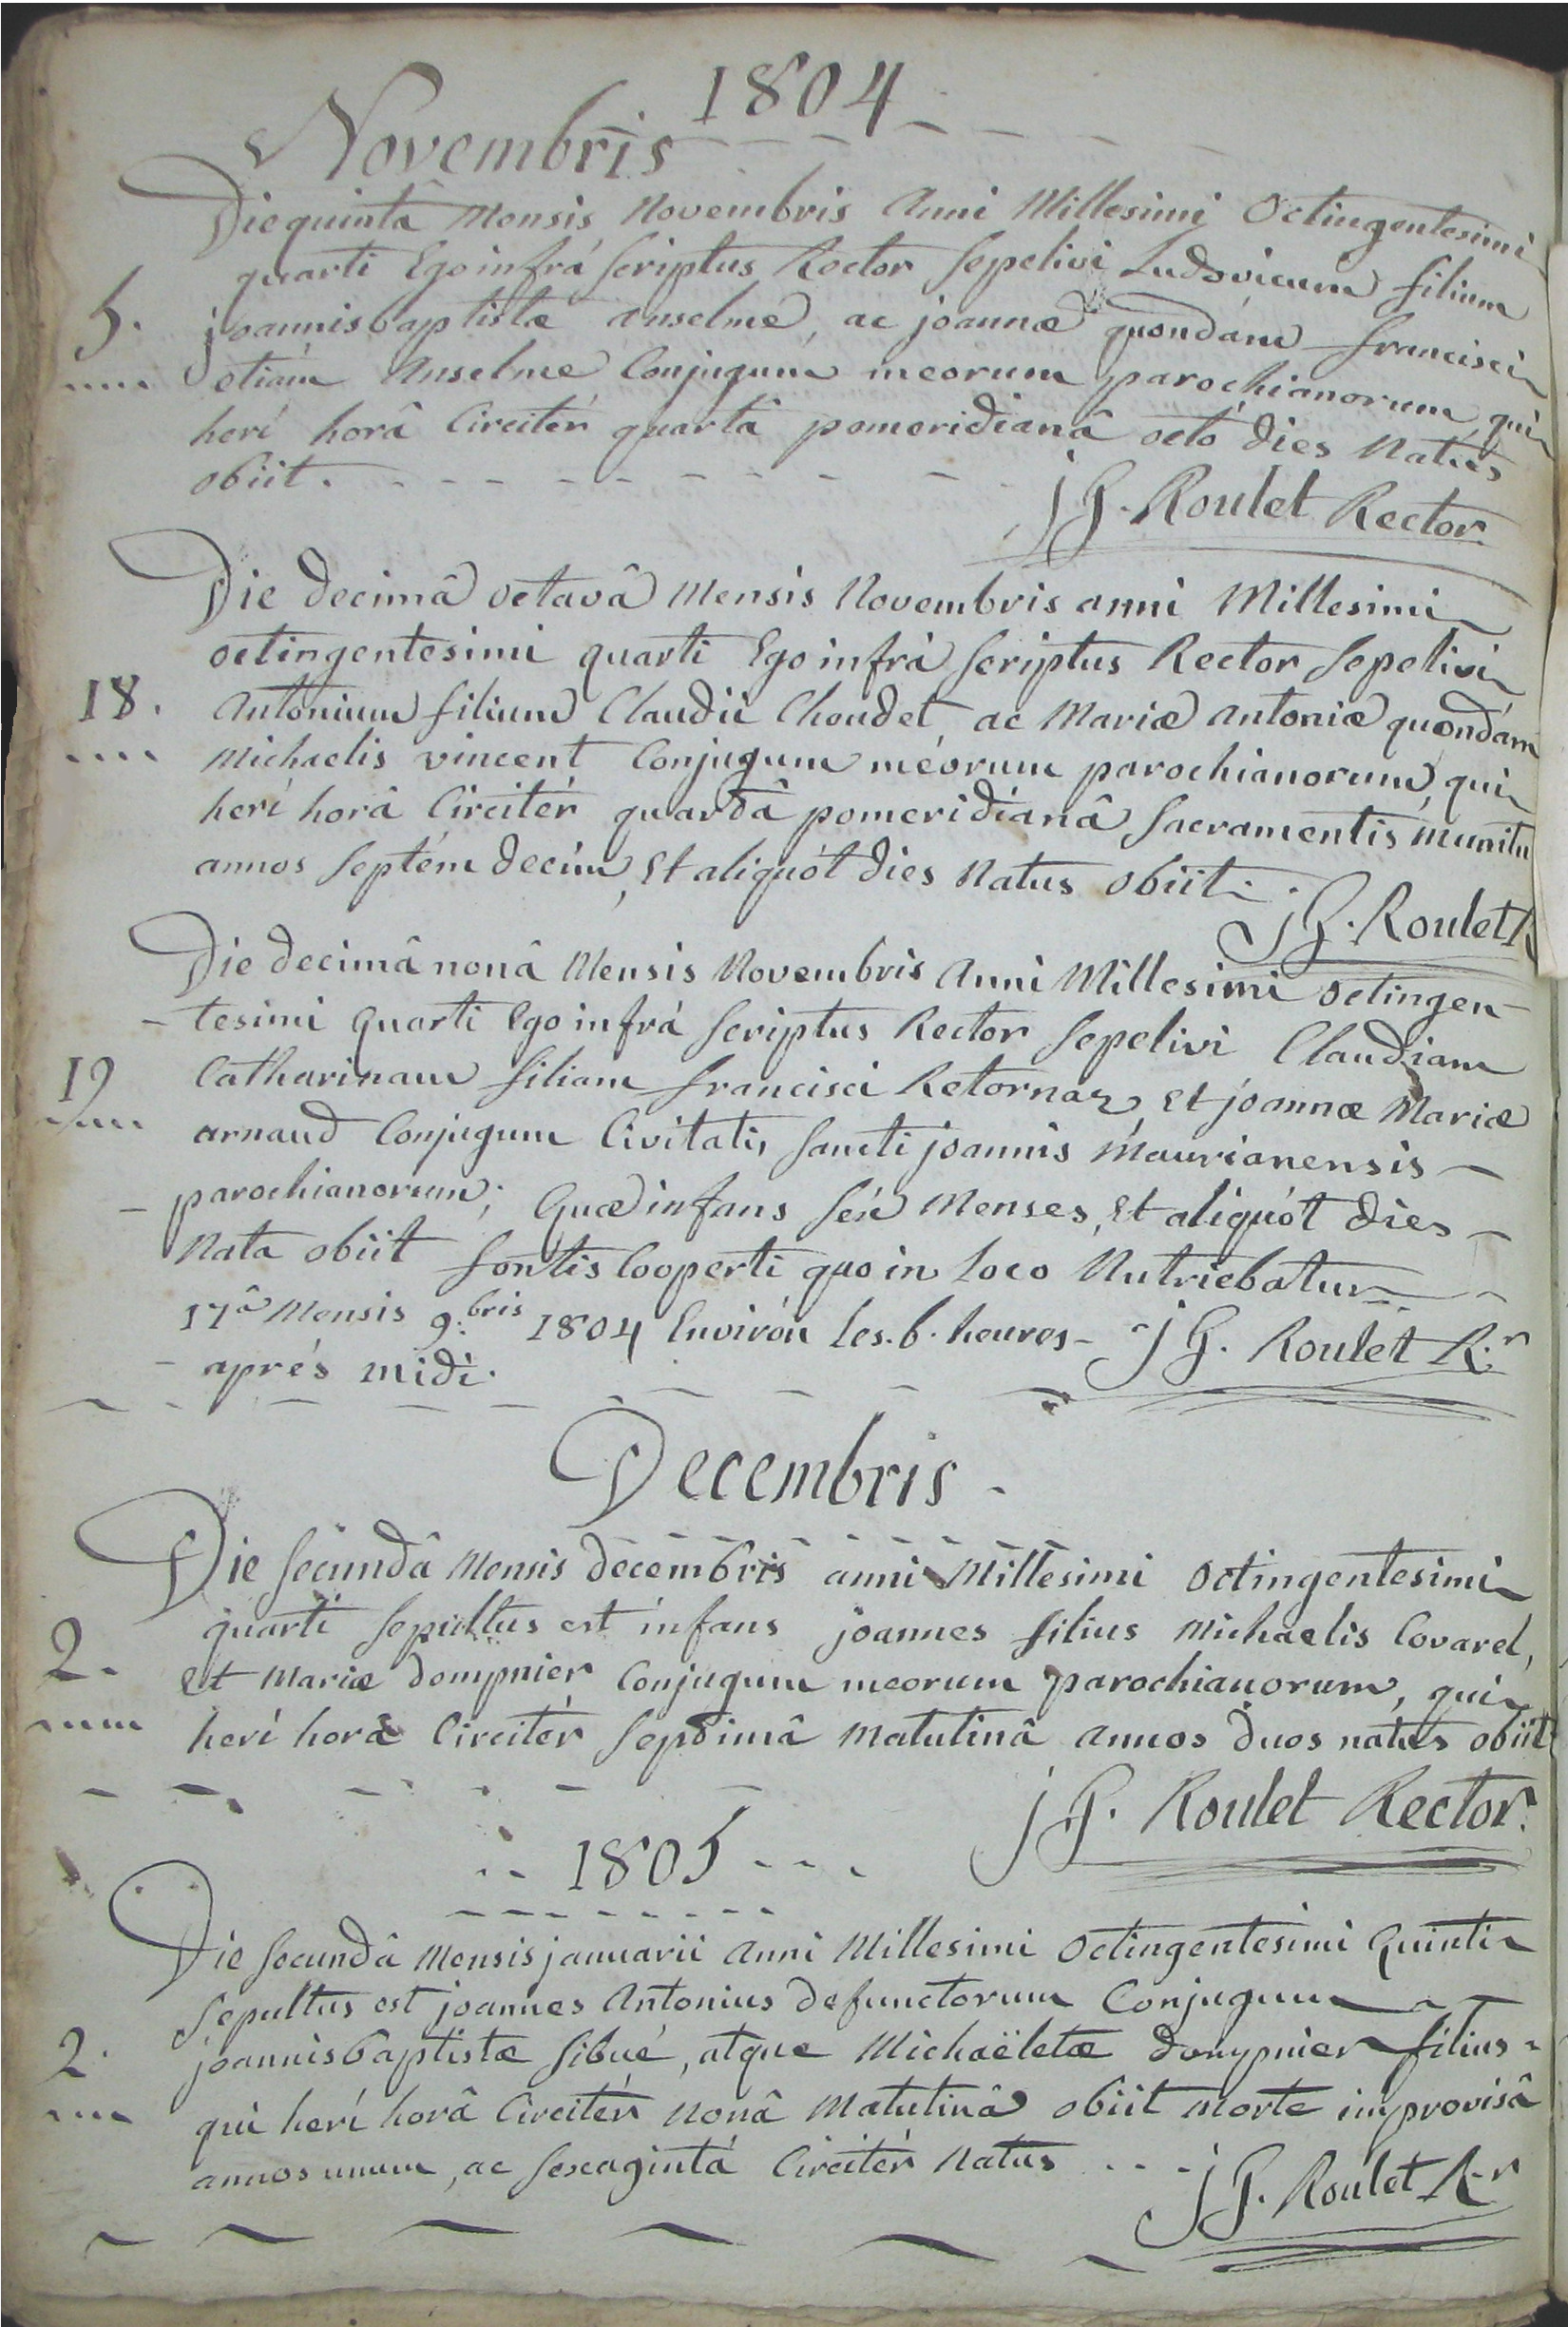 1804
Novembris
Die quintâ Mensis Novembris Anni Millesimi Octingentesimi
quarti Ego infrá scriptus Rector sepelivi Ludovicum filium
5. joannis baptistæ anselme, ac joannæ quondám francisci
etiám Anselme Conjugum meorum parochianorum, qui
herí horâ Circitér quartâ pomeridianâ octó dies Natus
obiit.
j G. Roulet Rector
Die decimâ octavâ Mensis Novembris anni Millesimi
octingentesimi quarti Ego infrá scriptus Rector sepelivi
18. Antonium filium Claudii Choudet, ac Mariæ antoniæ quondám
Michaelis vincent Conjugum meorum parochianorum, qui
herí horâ Circitér quartâ pomeridianâ sacramentis munitu
annos septém decim, Et aliquót dies Natus obiit.
j G. Roulet R
Die decimâ nonâ Mensis Novembris Anni Millesimi octingen-
-tesimi quarti Ego infrá scriptus Rector sepelivi Claudiam
19 Catharinam filiam francisci Retornaz, Et joannæ Mariæ
arnaud Conjugum Civitatis sancti joannis Maurianensis
-parochianorum; Quæ infans séx Menses, Et aliquót dies
Nata obiit fontis Cooperti quo in Loco Nutriebatur
17â Mensis 9.bris 1804 Environ les. 6. heures- j G. Roulet R.r
-aprés midi.
Decembris
Die secundâ Mensis decembris anni Millesimi Octingentesimi
quarti sepultus est infans joannes filius Michaelis Covarel,
2. Et Mariæ dompnier Conjugum meorum parochianorum, qui
herí horâ Circitér septimâ Matutinâ annos duos natus obiit
j G. Roulet Rector.
1805
Die secundâ Mensis januarii Anni Millesimi Octingentesimi Quinti
sepultus est joannes Antonius defunctorum Conjugum
2. joannis baptistæ sibué, atque Michaëletæ dompnier filius
qui herí horâ Circitér Nonâ Matutinâ obiit morte improvisâ
annos unum, ac sexagintá Circitér Natus
j G. Roulet R.r